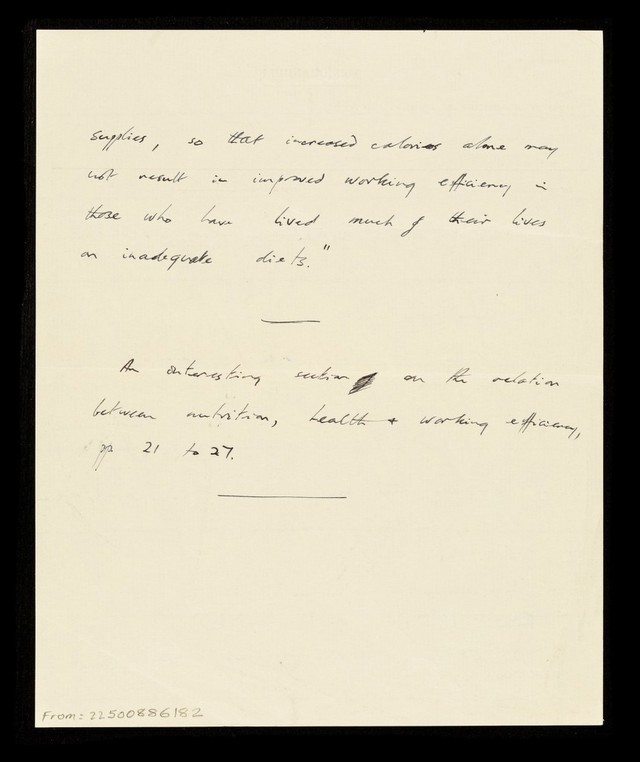 supplies, so that increased calories alone may
not result in improved working efficiency in
those who have lived much of their lives
on inadequate diets."
An interesting section on the relation
between nutrition, health + working efficiency,
pp 21 to 27.
From: 22500886182